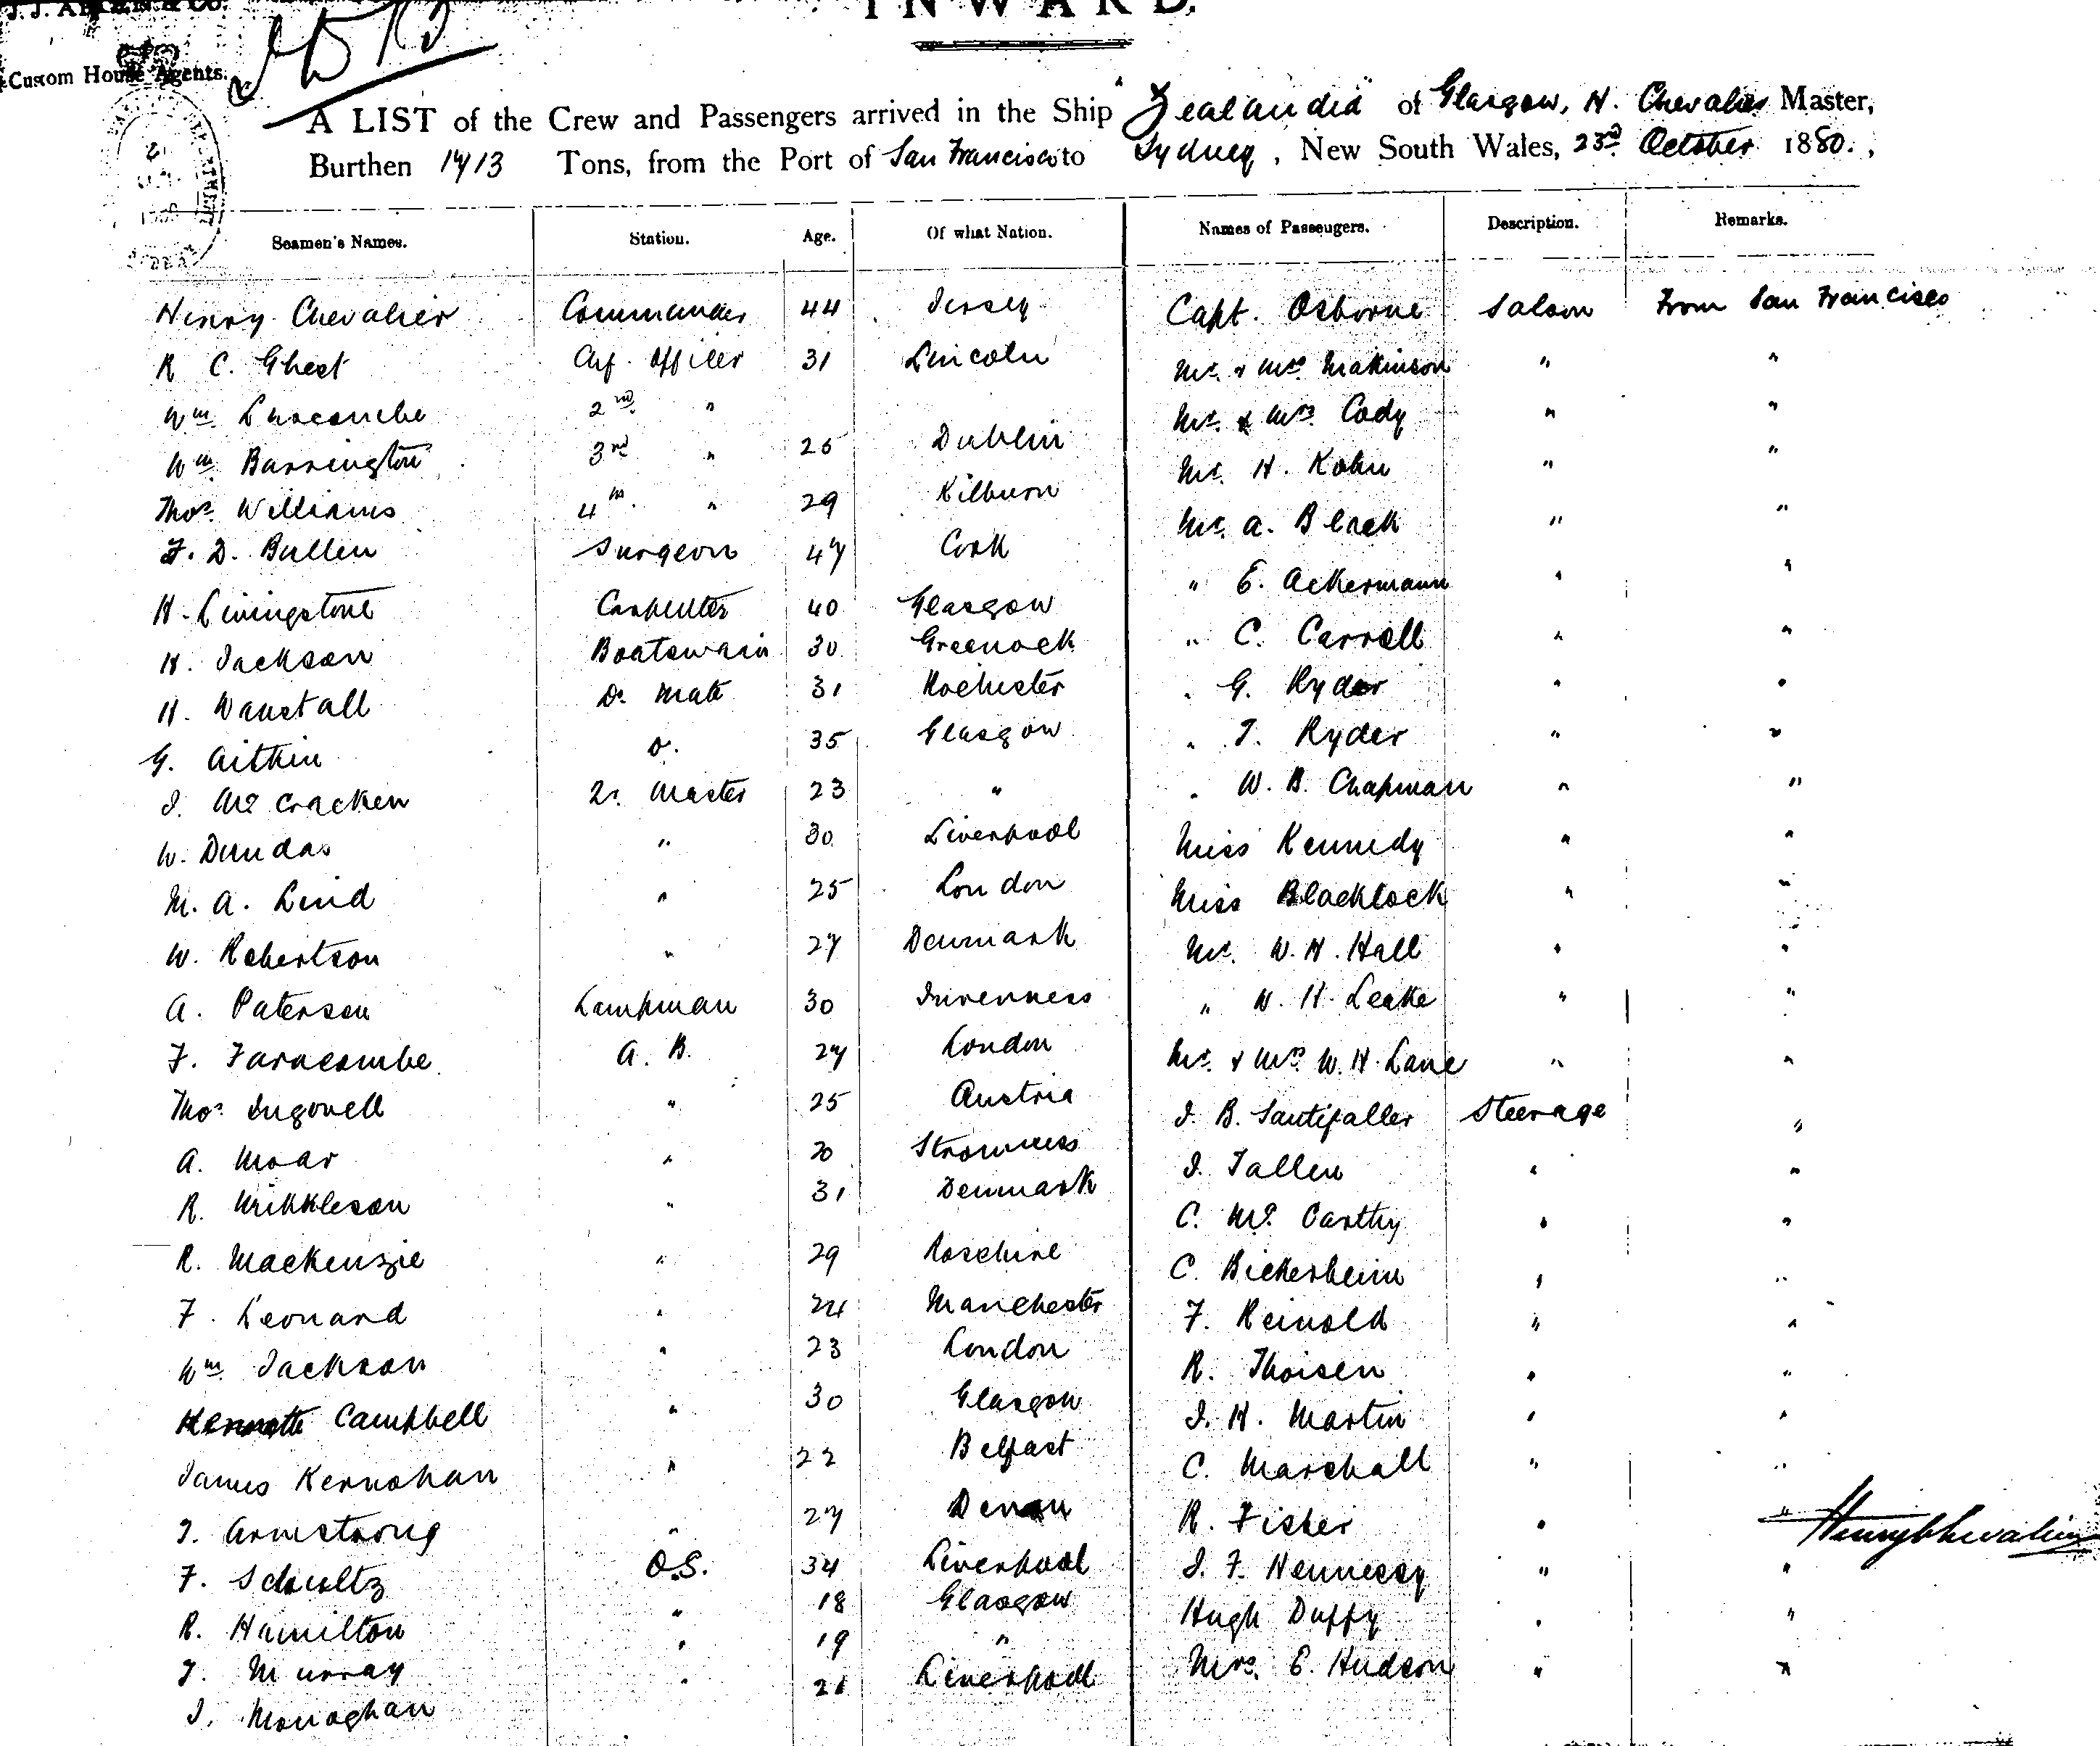 J. J. & Co.
INWARD.
Custom House Agents.
A LIST of the Crew and Passengers arrived in the Ship "Zealandia" of Glasgow, H. Chevalier Master,
Burthen 1713 Tons, from the Port of San Francisco to Sydney, New South Wales, 23rd October 1880.,
Seamen's Names. Station. Age. Of what Nation. Names of Passengers. Description. Remarks.
Henry Chevalier Commander 44 Jersey Capt. Osborne Saloon From San Francisco
R C. Ghest Chf. Officer 31 Lincoln Mr. & Mrs. Makinson " "
Wm Luscombe 2nd " Mr. & Mrs. Cody " "
Wm Barrington 3rd " 25 Dublin Mr. H. Kohn " "
Thos. Williams 4th " 29 Kilburn Mr. A. Black " "
F. D. Bullen Surgeon 47 Cork " E. Ackermann " "
H. Livingstone Carpenter 40 Glasgow " C. Carroll " "
H. Jackson Boatswain 30 Greenock " G. Ryder " "
H. Wanstall Do. Mate 31 Rochester " T. Ryder " "
G. Aitkin Do. 35 Glasgow " W. B. Chapman " "
J. McCracken Qr. Master 23 " Miss Kennedy " "
W. Dundas " 30 Liverpool Miss Blacklock " "
M. A. Lind " 25 London Mr. W. H. Hall " "
W. Robertson " 27 Denmark " W. H. Leake " "
A. Paterson Lampman 30 Inverness Mr. & Mrs. W. H. Lane " "
F. Faracombe A. B. 27 London J. B. Santifaller Steerage "
Thos. Ingovell " 25 Austria J. Tallen " "
A. Moar " 20 Stromness C. McCarthy " "
R. Mikkleson " 31 Denmark C. Bickerheim " "
R. Mackenzie " 29 F. Reinold " "
F. Leonard " 24 Manchester R. Thoisen " "
Wm Jackson " 23 London J. H. Martin " "
Kenneth Campbell " 30 Glasgow C. Marshall " "
James Kernohan " 22 Belfast R. Fisher " " Henry Chevalier
J. Armstrong " 27 Devon J. F. Hennessy " "
F. Schultz O.S. 34 Liverpool Hugh Duffy " "
R. Hamilton " 18 Glasgow Mrs. E. Hudson " "
J. Murray " 19 "
J. Monaghan " 21 Liverpool